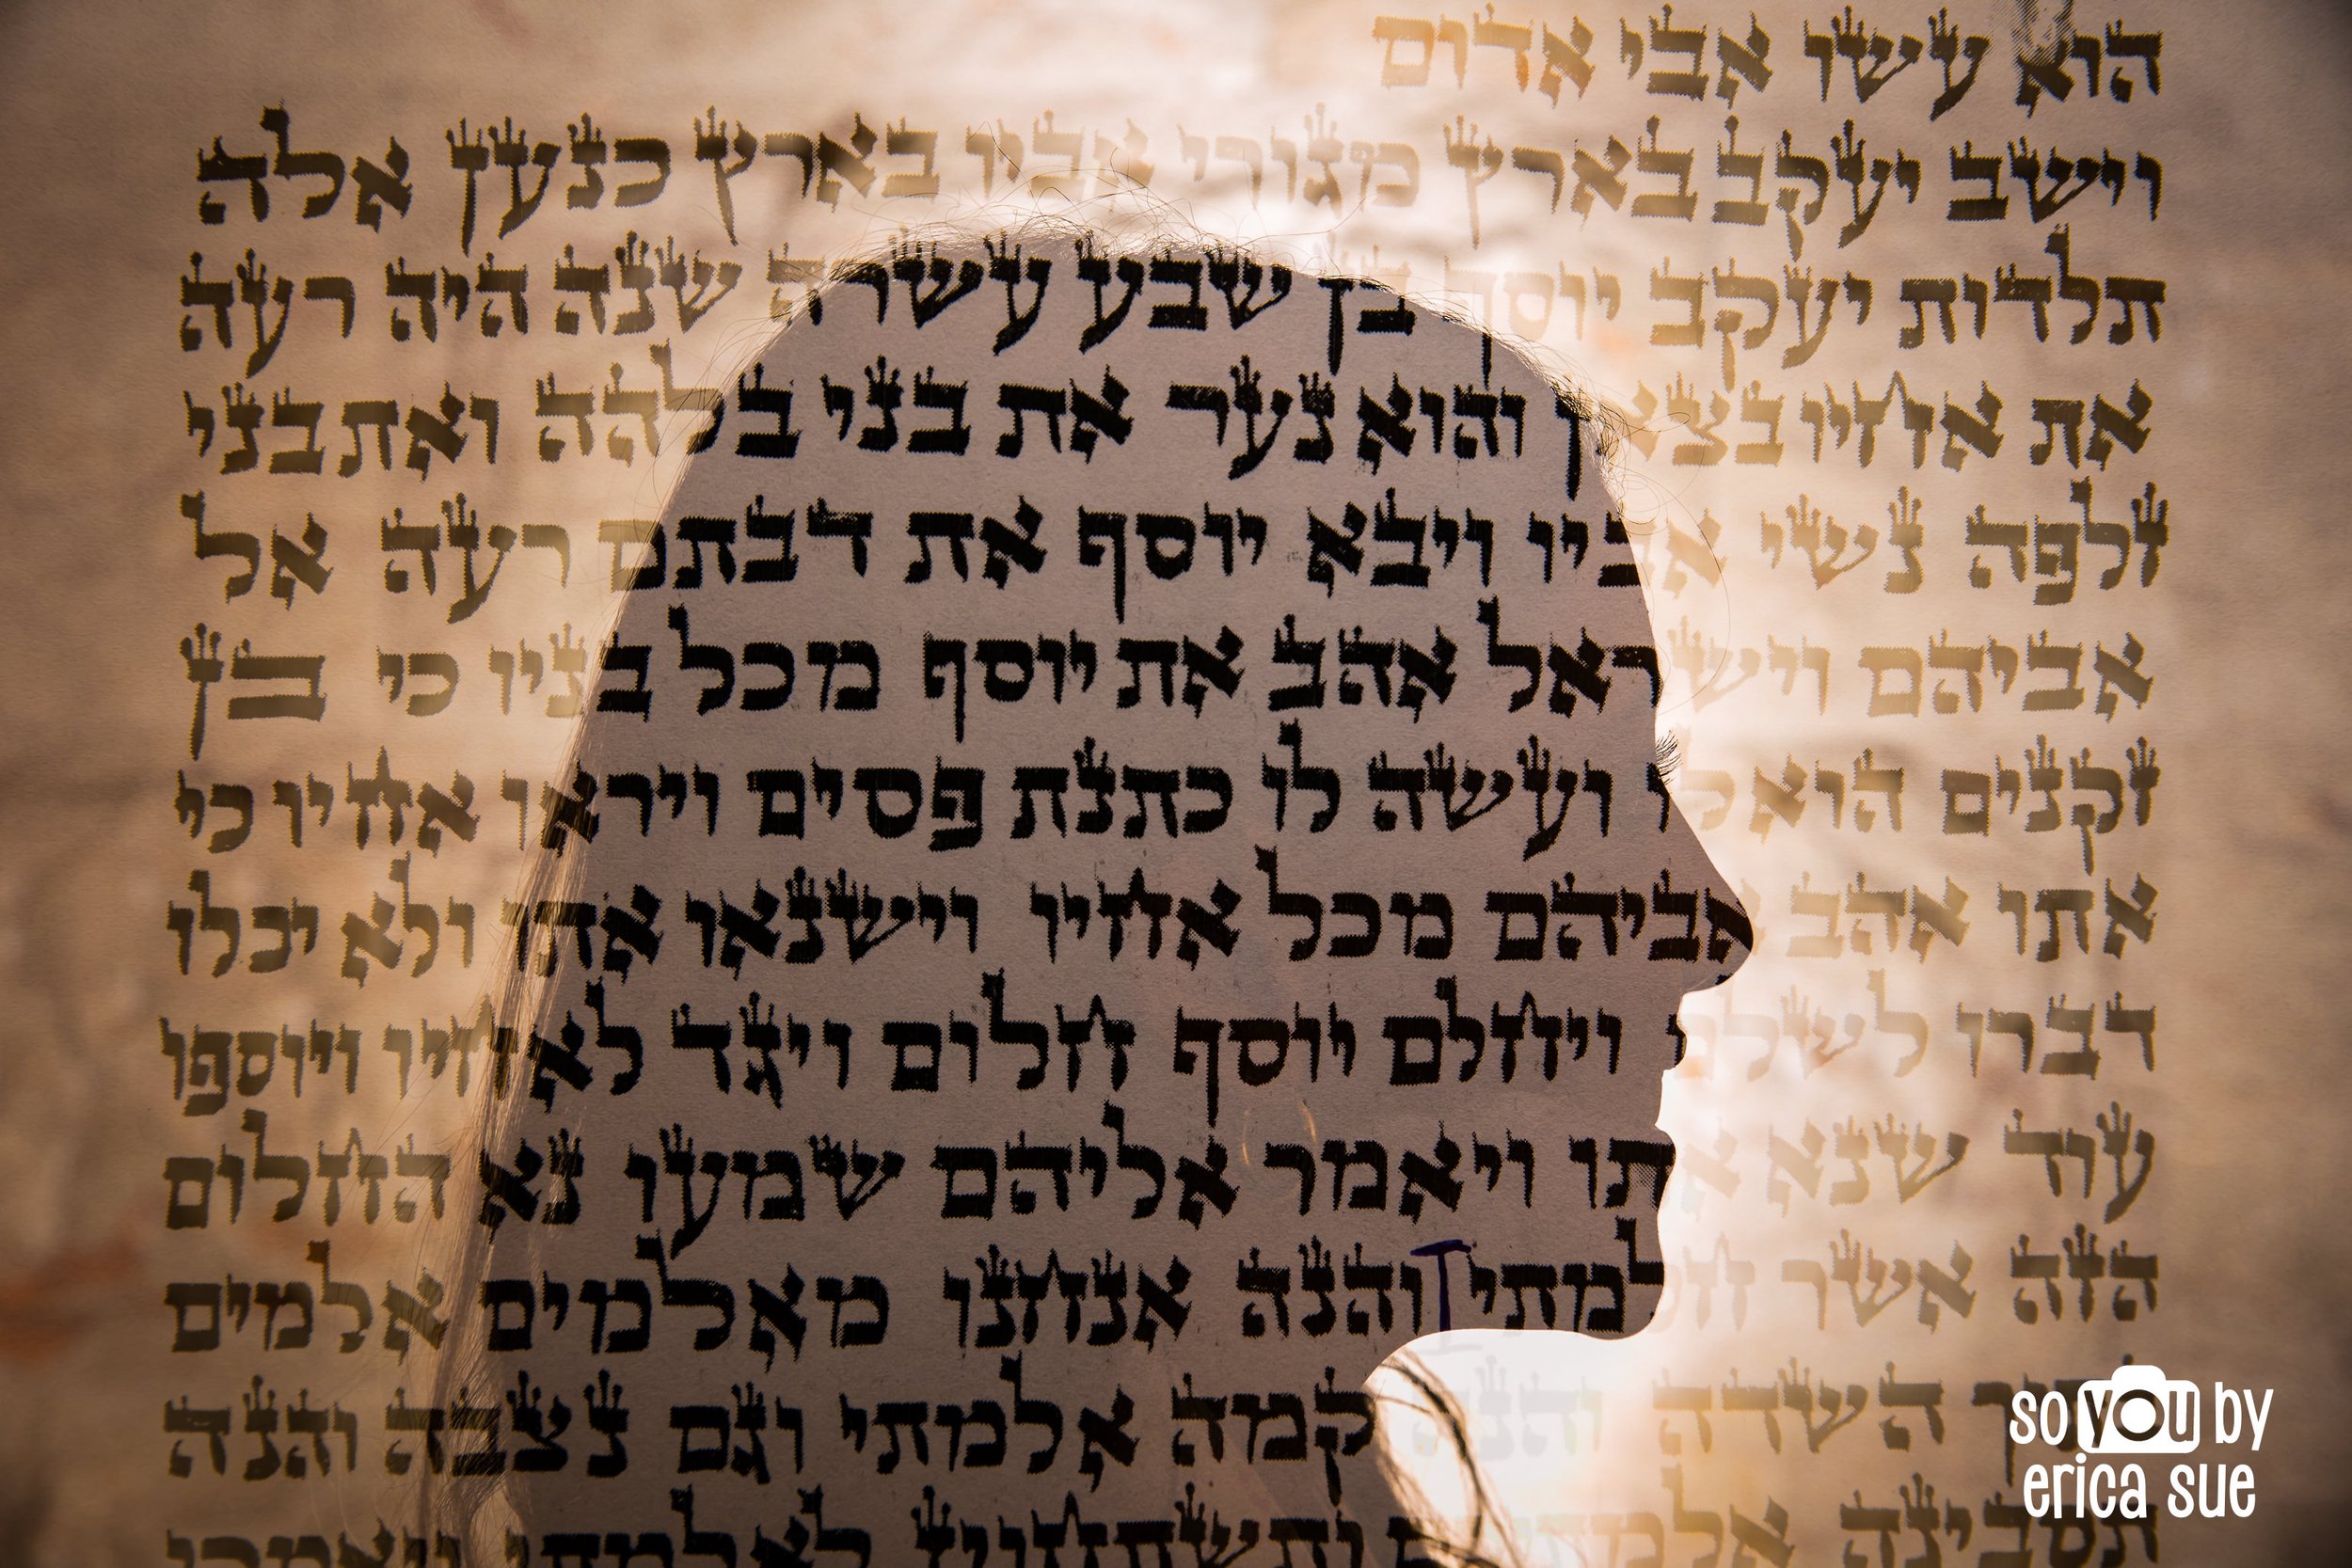 הוא עשו אבי אדום
וישב יעקב בארץ מגורי אביו בארץ כנען אלה
תלדות יעקב יוסף בן שבע עשרה שנה היה רעה
את אחיו בצאן והוא נער את בני בלהה ואת בני
זלפה נשי אביו ויבא יוסף את דבתם רעה אל
אביהם וישראל אהב את יוסף מכל בניו כי בן
זקנים הוא לו ועשה לו כתנת פסים ויראו אחיו כי
אתו אהב אביהם מכל אחיו וישנאו אתו ולא יכלו
דברו לשלם ויחלם יוסף חלום ויגד לאחיו ויוספו
עוד שנא אתו ויאמר אליהם שמעו נא החלום
הזה אשר חלמתי והנה אנחנו מאלמים אלמים
השדה והנה קמה אלמתי וגם נצבה והנה
תסבינה לאלמתי
so you by
erica sue